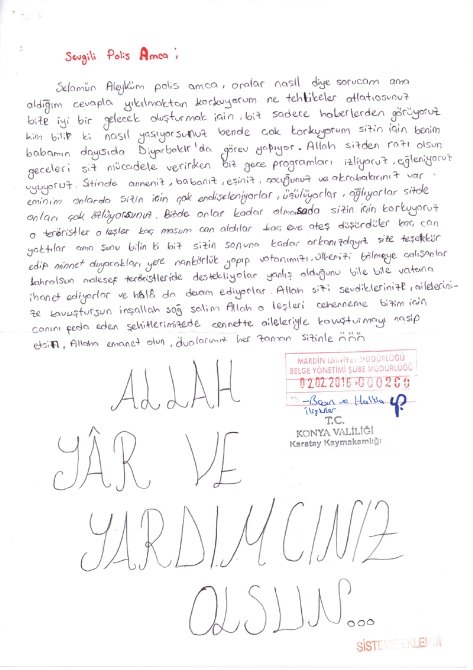 Sevgili Polis Amca ;
Selamün Aleyküm polis amca, oralar nasıl diye sorucam ama
aldığım cevapla yıkılmaktan korkuyorum ne tehlikeler atlatıosunuz
bize iyi bir gelecek oluşturmak için, biz sadece haberlerden görüyoruz
kim bilir ki nasıl yaşıyorsunuz bende çok korkuyorum sizin için benim
babamın dayısıda Diyarbakır'da görev yapıyor. Allah sizden razı olsun
geceleri siz mücadele verirken biz gece programları izliyoruz, eğleniyoruz
uyuyoruz. Sizinde anneniz, babanız, eşiniz, çocuğunuz ve akrabalarınız var
eminim onlarda sizin için çok endişeleniyorlar, üzülüyorlar, ağlıyorlar sizde
onları çok özlüyorsunuz. Bizde onlar kadar olmasada sizin için korkuyoruz
o teröristler o leşler kaç masum can aldılar kaç eve ateş düşürdüler kaç can
yaktılar ama şunu bilin ki biz sizin sonuna kadar arkanızdayız size teşekkür
edip minnet duyacakları yere nankörlük yapıp vatanımızı, ülkemizi bölmeye çalışanlar
kahrolsun malesef teröristleride destekliyorlar yanlış olduğunu bile bile vatana
ihanet ediyorlar ve hâlâ da devam ediyorlar. Allah sizi sevdiklerinize, ailelerini-
ze kavuştursun inşallah sağ salim Allah o leşleri cehenneme bizim için
canını feda eden şehitlerimizede cennette aileleriyle kavuşturmayı nasip
etsin, Allaha emanet olun, dualarımız her zaman sizinle
MARDİN EMNİYET MÜDÜRLÜĞÜ
BELGE YÖNETİMİ ŞUBE MÜDÜRLÜĞÜ
02.02.2016 000266
- Basın ve Halkla
İlişkiler
T.C.
KONYA VALİLİĞİ
Karatay Kaymakamlığı
ALLAH
YÂR VE
YARDIMCINIZ
OLSUN...
SİSTEME EKLENDİ